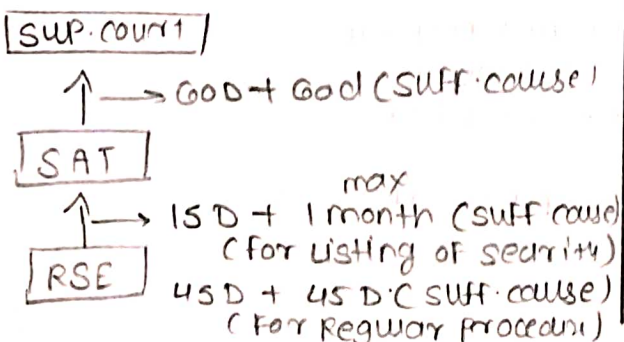 SUP. COURT
→ 60D + 60d (suff. cause)
SAT
max
→ 15D + 1 month (suff cause)
(for Listing of security)
RSE
45D + 45D (suff. cause)
(For Regular procedure)